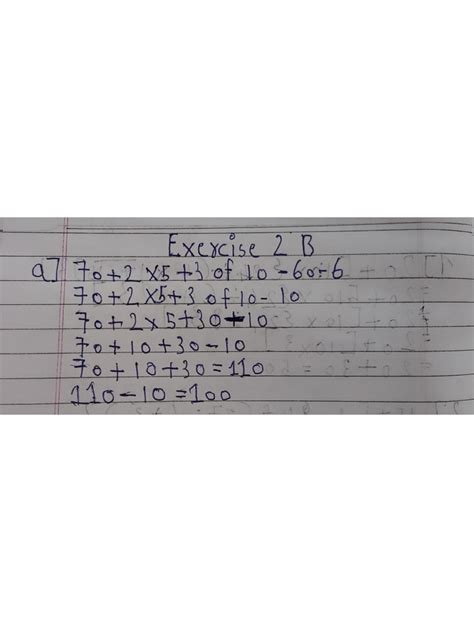 Exercise 2 B
a] 70+2×5+3 of 10-60÷6
70+2×5+3 of 10-10
70+2×5+30-10
70+10+30-10
70+10+30=110
110-10=100